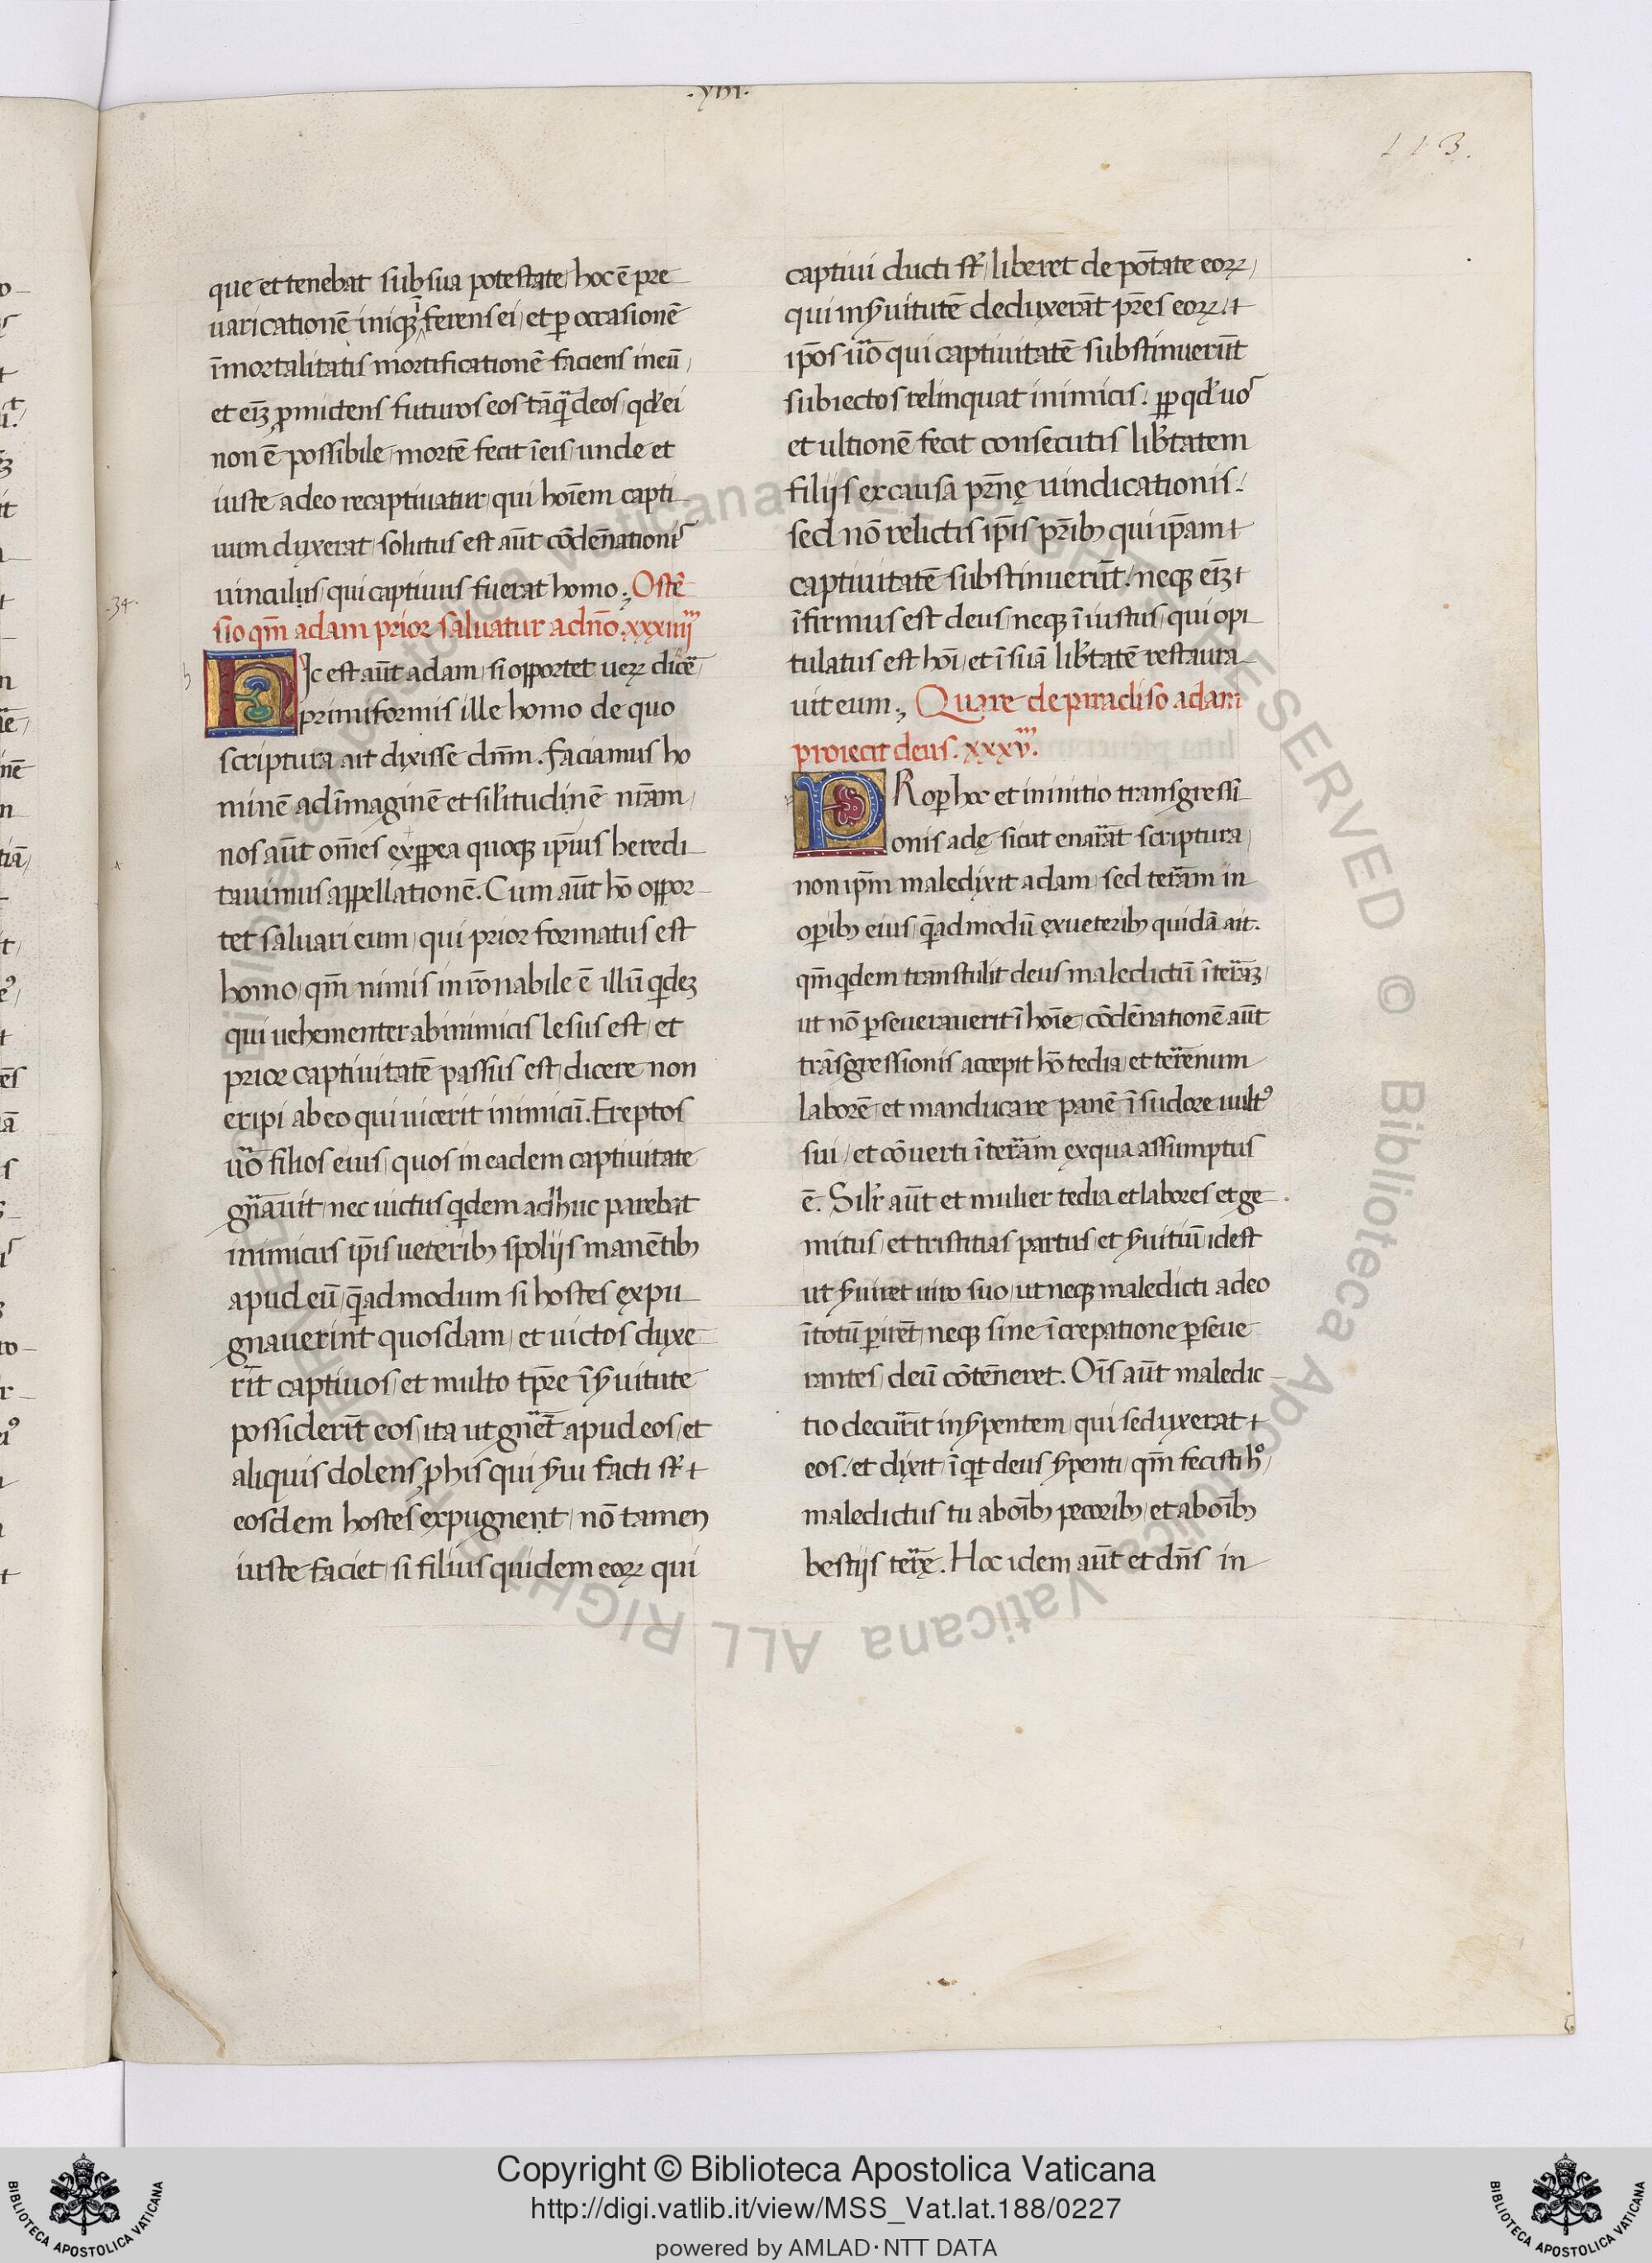 .XIII.
113.
que et tenebat sub sua potestate, hoc ē pre
uaricationē iniqȝ īferens ei, et ꝑ occasionē
īmortalitatis mortificationē faciens in eū,
et eīȝ ꝓmictens futuros eos tāq̄ deos, qđ ei
non ē possibile, mortē fecit ī eis, unde et
iuste a deo recaptiuatur, qui hoīem capti
uum duxerat, solutus est aūt cōdēnationis
uinculis, qui captiuus fuerat homo; Ostē
sio qm̄ adam prior saluatur a dn̄o. xxxiiii
34.
HIc est aūt adam, si opportet ueꝝ dicē
primiformis ille homo de quo
scriptura ait dixisse dn̄m. faciamus ho
minē ad īmaginē et silitudinē nr̄am,
nos aūt om̄es ex ꝑp ea quoqȝ ip̄ius heredi
tauimus appellationē. Cum aūt hō oppor
tet saluari eum, qui prior formatus est
homo, qm̄ nimis inrōnabile ē illū qidēȝ
qui uehementer ab inimicis lesus est, et
prior captiuitatē passus est, dicere non
eripi ab eo qui uicerit inimicū. Ereptos
ūo filios eius, quos in eadem captiuitate
gn̄auit, nec uictus qidem adhuc parebat
inimicus ip̄is ueteribꝫ spolijs manētibꝫ
apud eū, q̄ad modum si hostes expu
gnauerint quosdam, et uictos duxe
rīt captiuos, et multo tp̄re ī ẏuitute
possiderīt eos, ita ut gn̄et apud eos, et
aliquis dolens ꝓ his qui ẏui facti st̄ t
eosdem hostes expugnent, nō tamen
iuste faciet, si filius quidem eoꝝ qui
captiui ducti st̄, liberet de potāte eoꝝ,
qui in ẏuitutē deduxerāt pr̄es eoꝝ. t
ip̄os ūo qui captiuitatē substinuerūt
subiectos relinquat inimicis. ꝑp qđ uos
et ultionē fecit consecutis lib̄tatem
filijs ex causa pr̄nę uindicationis.
sed nō relictis ip̄is pr̄ibꝫ qui ip̄am t
captiuitatē substinuerūt. neqȝ eīȝ t
īfirmus est deus, neqȝ īiustus, qui opi
tulatus est hoī, et ī suā lib̄tatē restaura
uit eum; Quare de paradiso adam
proiecit deus. xxxv.
PRop hoc et in initio transgressi
onis adę sicut enarāt scriptura,
non ip̄m maledixit adam, sed terām in
oꝑibꝫ eius, q̄ad modū ex ueteribꝫ quidā ait.
qm̄ qidem transtulit deus maledictū ī terāȝ,
ut nō ꝑseuerauerit ī hoīe, cōdēnationē aūt
trāsgressionis accepit hō tedia, et terēnum
laborē, et manducare panē ī sudore uultꝰ
sui, et cōuerti ī terām ex qua assumptus
ē. Silr aūt et mulier tedia et labores et ge
mitus, et tristitias partus, et ẏuitiū, idest
ut ẏuiret uiro suo, ut neqȝ maledicti a deo
ī totū ꝑirēt, neqȝ sine īcrepatione ꝑseue
rantes, deū cōtēneret. Oīs aūt maledic
tio decurīt in ẏpentem, qui seduxerat t
eos. et dixit, īqit deus ẏpenti, qm̄ fecisti hͦ,
maledictus tu ab oīb̄ pecoribꝫ, et ab oīb̄
bestijs terę. Hoc idem aūt et dn̄s in
Copyright © Biblioteca Apostolica Vaticana
http://digi.vatlib.it/view/MSS_Vat.lat.188/0227
powered by AMLAD·NTT DATA
BIBLIOTECA APOSTOLICA VATICANA
BIBLIOTECA APOSTOLICA VATICANA